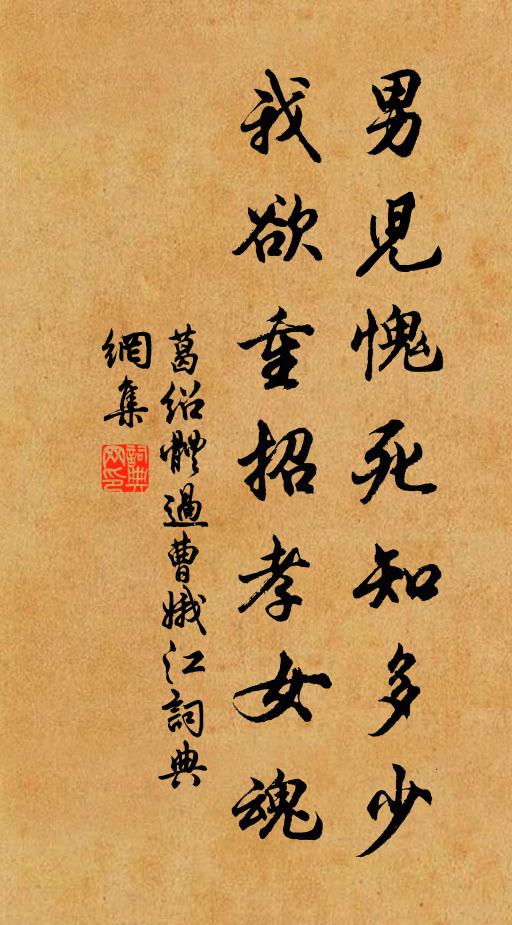 男兒愧死知多少
我欲重招孝女魂
葛紹體過曹娥江詞典
網集
詞典
网印